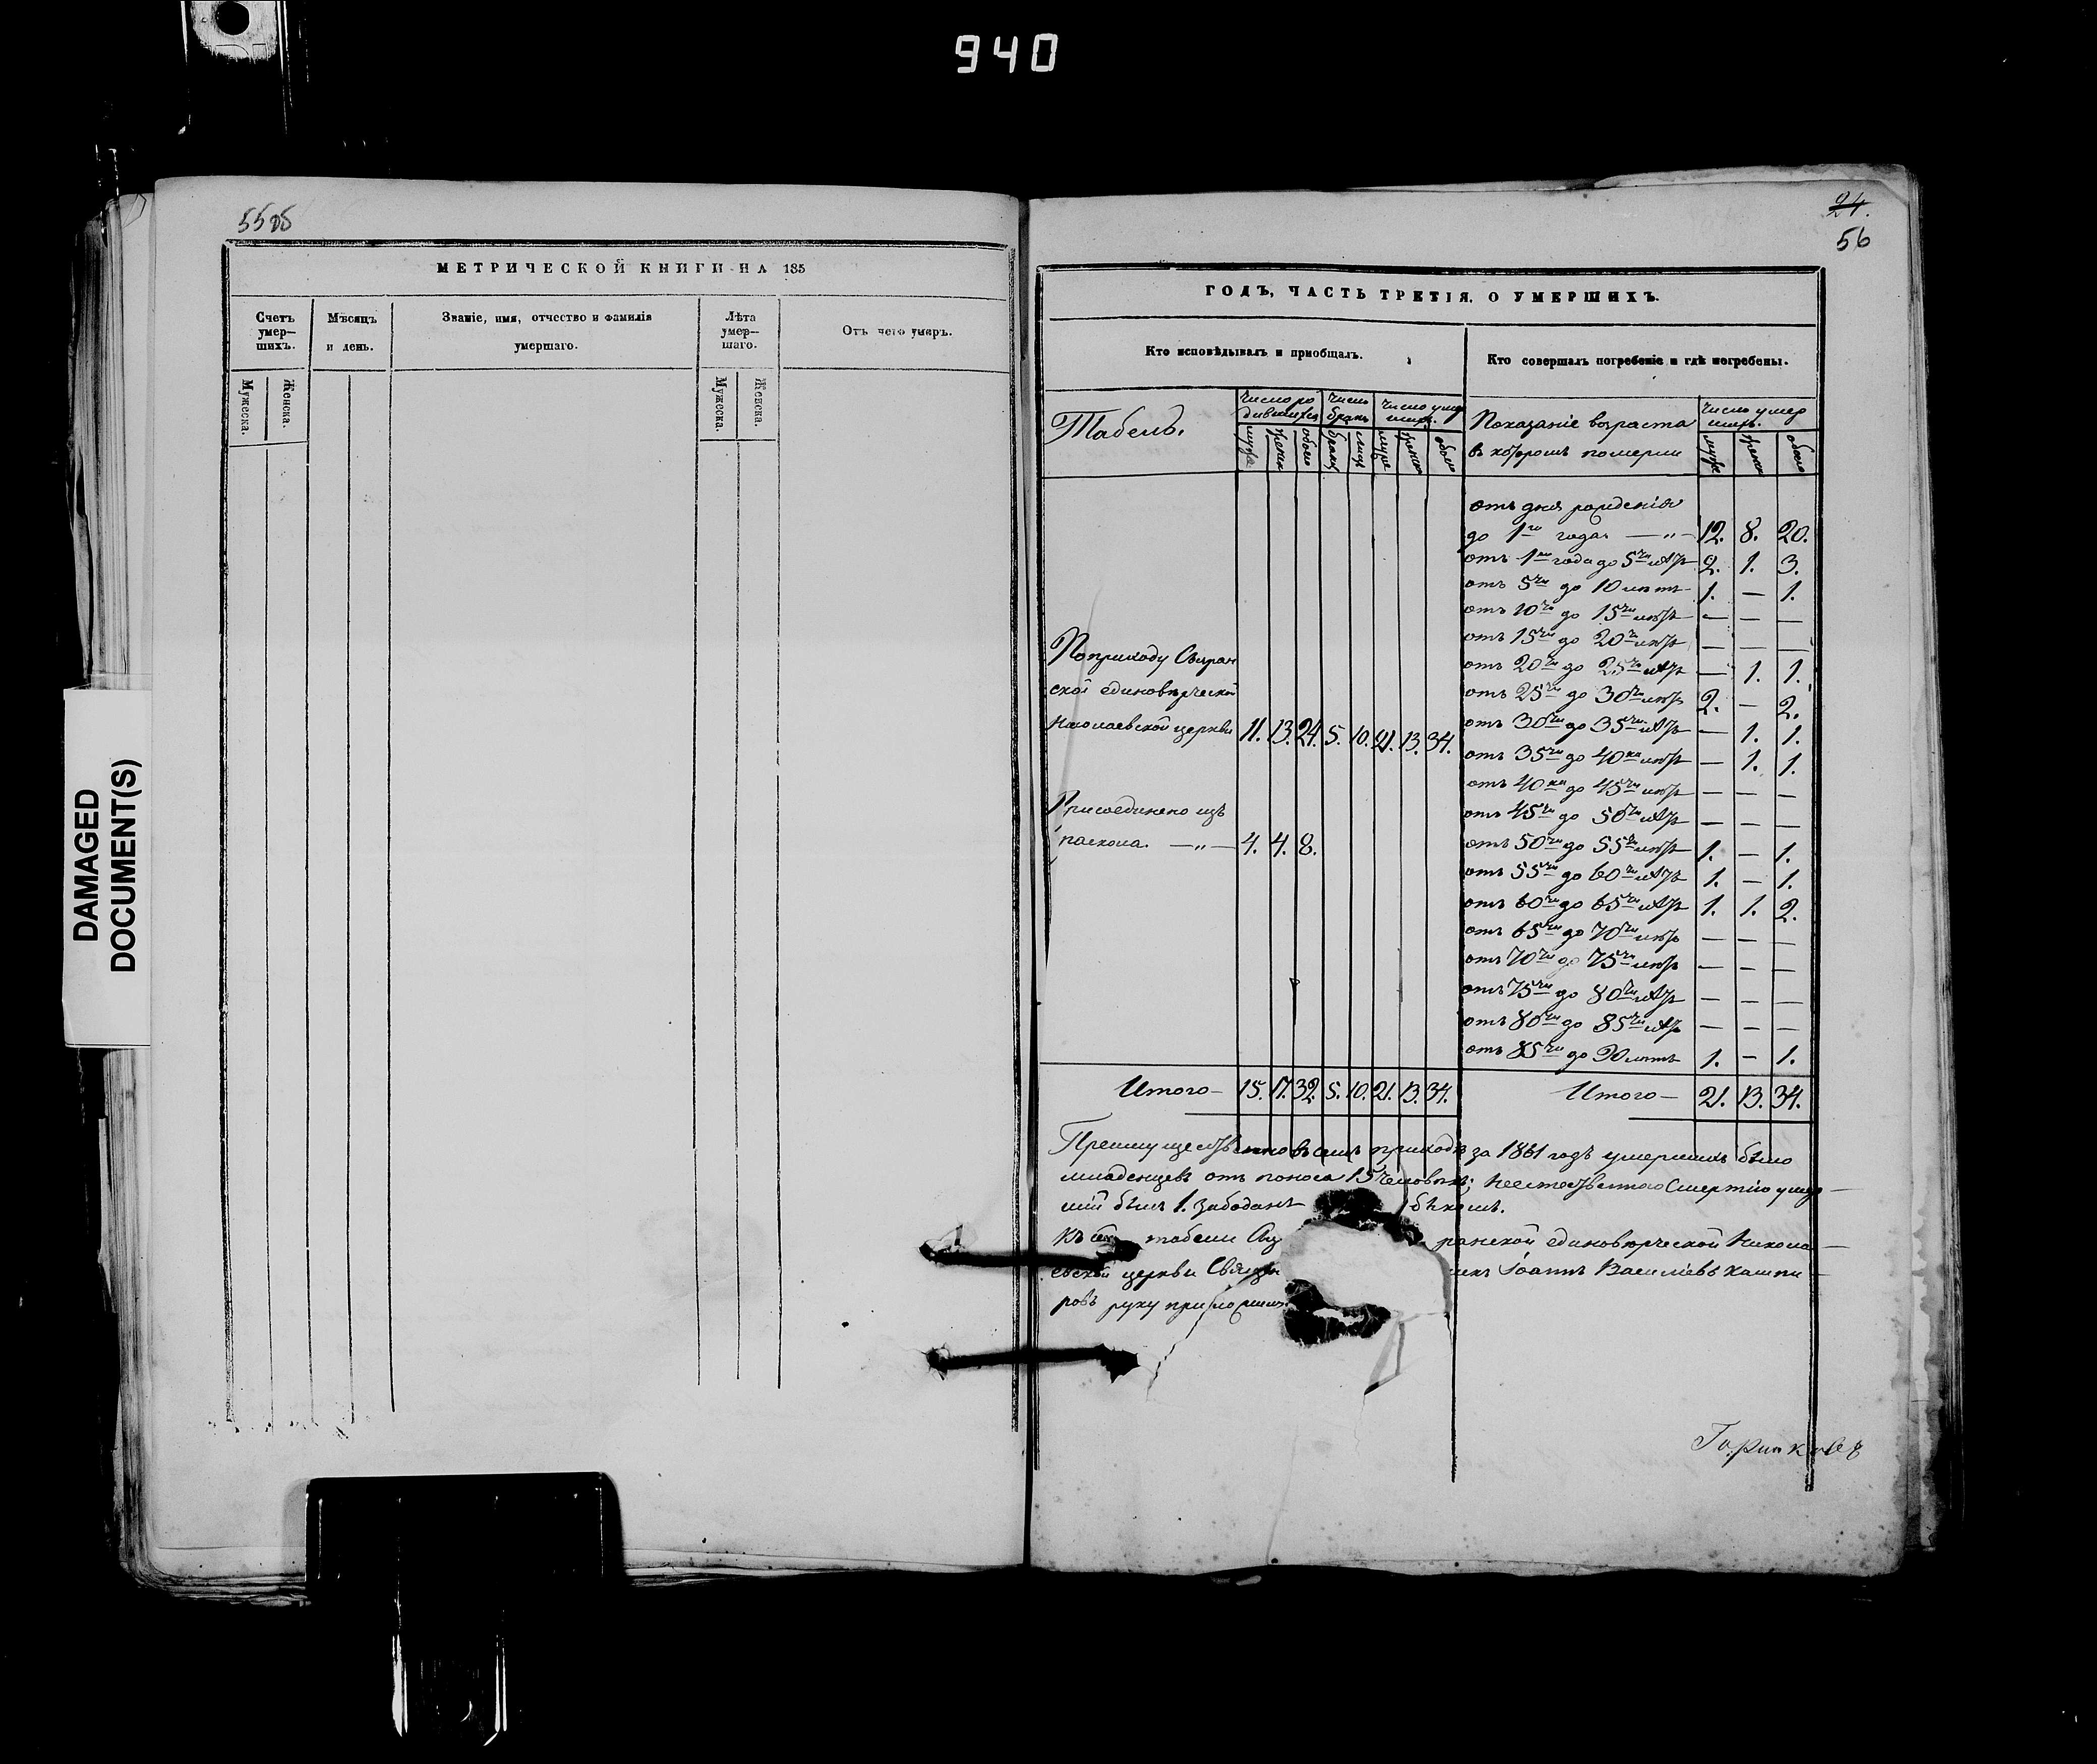 940
DAMAGED
DOCUMENT(S)
55об
МЕТРИЧЕСКОЙ КНИГИ НА 185
Счетъ умер—шихъ.
Мужеска.
Женска.
Мѣсяцъ и день.
Званіе, имя, отчество и фамилія умершаго.
Лѣта умер—шаго.
Мужеска.
Женска.
Отъ чего умеръ.
24.
56
ГОДЪ, ЧАСТЬ ТРЕТІЯ, О УМЕРШИХЪ.
Кто исповѣдывалъ и пріобщалъ.
Кто совершалъ погребеніе и гдѣ погребены.
Табель.
Число родившихся
Число бракъ
Число умерших.
муже женск обоего браков лицъ муже женск обоего
Показаніе возраста
въ которомъ померли
Число умерших.
муже женск обоего
Поприходу Сызран
ской единовѣрческой
Николаевской церкви 11. 13. 24. 5. 10. 21. 13. 34.
Присоединено изъ
раскола. — „ — 4. 4. 8.
Итого — 15. 17. 32. 5. 10. 21. 13. 34.
отъ дня рожденія
до 1го года — „ — 12. 8. 20.
отъ 1го года до 5ти лѣтъ 2. 1. 3.
отъ 5ти до 10 лѣтъ 1. — 1.
отъ 10ти до 15ти лѣтъ — — —
отъ 15ти до 20ти лѣтъ — — —
отъ 20ти до 25ти лѣтъ — 1. 1.
отъ 25ти до 30ти лѣтъ 2. — 2.
отъ 30ти до 35ти лѣтъ — 1. 1.
отъ 35ти до 40ка лѣтъ — 1. 1.
отъ 40ка до 45ти лѣтъ — — —
отъ 45ти до 50ти лѣтъ — — —
отъ 50ти до 55ти лѣтъ 1. — 1.
отъ 55ти до 60ти лѣтъ 1. — 1.
отъ 60ти до 65ти лѣтъ 1. 1. 2.
отъ 65ти до 70ти лѣтъ — — —
отъ 70ти до 75ти лѣтъ — — —
отъ 75ти до 80ти лѣтъ — — —
отъ 80ти до 85ти лѣтъ — — —
отъ 85ти до 90 лѣтъ 1. — 1.
Итого — 21. 13. 34.
Преимущественно въ семъ приходѣ за 1861 годъ умершихъ было
младенцевъ отъ поноса 15 человѣкъ; неестественною смертію умер
шій былъ 1. забоданъ быкомъ.
Къ сей табели ранской единовѣрческой Никола
евской церкви Свящ никъ Іоаннъ Васильевъ Кашпи
ровъ руку приложилъ.